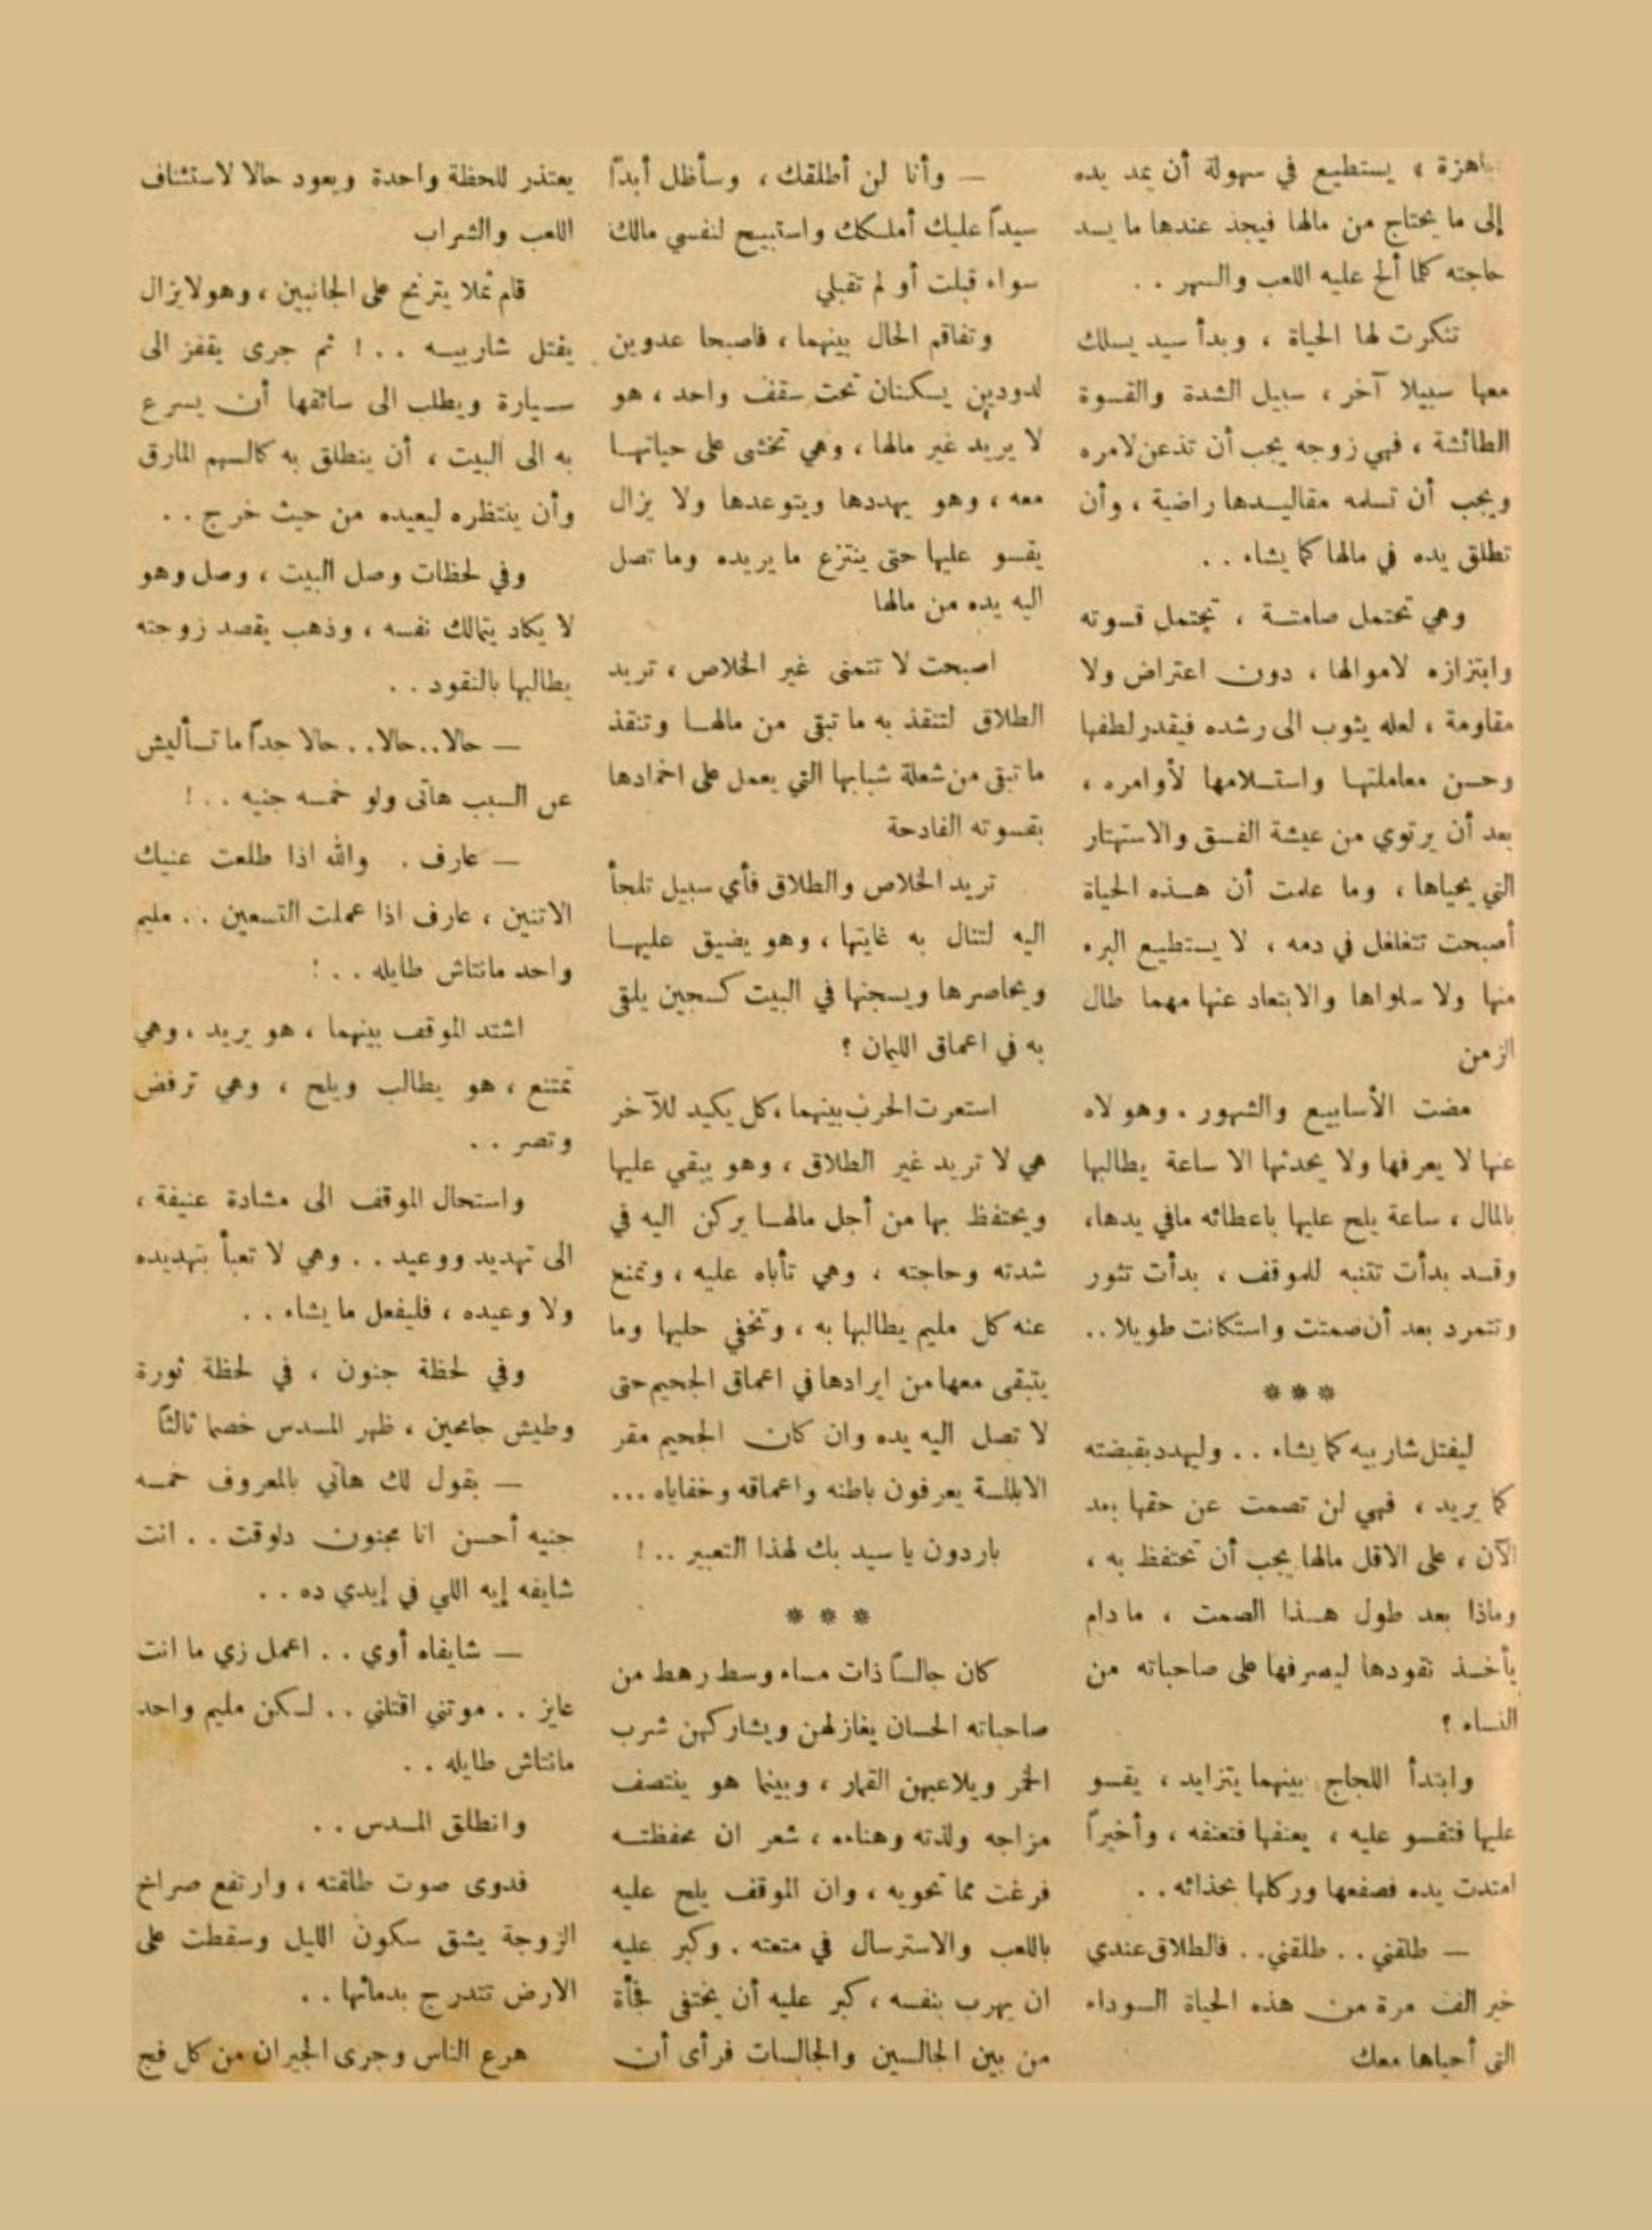 يستطيع في سهولة أن يمد يده
إلى ما يحتاج من مالها فيجد عندها ما يسد
حاجته كلما ألح عليه اللعب والسهر . .
تنكرت لها الحياة ، وبدأ سيد يسلك
معها سبيلا آخر ، سبيل الشدة والقسوة
الطائشة ، فهي زوجه يجب أن تذعن لامره
ويجب أن تسلمه مقاليدها راضية ، وأن
تطلق يده في مالها كما يشاء . .
وهي تحتمل صامتة ، تحتمل قسوته
وابتزازه لاموالها ، دون اعتراض ولا
مقاومة ، لعله يثوب الى رشده فيقدر لطفها
وحسن معاملتها واستسلامها لأوامره ،
بعد أن يرتوي من عيشة الفسق والاستهتار
التي يحياها ، وما علمت أن هذه الحياة
أصبحت تتغلغل في دمه ، لا يستطيع البرء
منها ولا سلواها والابتعاد عنها مهما طال
الزمن
مضت الأسابيع والشهور . وهو لاه
عنها لا يعرفها ولا يحدثها الا ساعة يطالبها
بالمال ، ساعة يلح عليها باعطائه مافي يدها ،
وقد بدأت تتنبه للموقف ، بدأت تثور
وتتمرد بعد أن صمتت واستكانت طويلا . .
***
ليفتل شاربيه كما يشاء . . وليهدد بقبضته
كما يريد ، فهي لن تصمت عن حقها بعد
الآن ، على الاقل مالها يجب أن تحتفظ به ،
وماذا بعد طول هذا الصمت ، ما دام
يأخذ نقودها ليصرفها على صاحباته من
النساء ؟
وابتدأ اللجاج بينهما يتزايد ، يقسو
عليها فتقسو عليه ، يعنفها فتعنفه ، وأخيراً
امتدت يده فصفعها وركلها بحذائه . .
— طلقني . . طلقني . . فالطلاق عندي
خير الف مرة من هذه الحياة السوداء
التي أحياها معك
— وأنا لن أطلقك ، وسأظل أبداً
سيداً عليك أملكك واستبيح لنفسي مالك
سواء قبلت أو لم تقبلي
وتفاقم الحال بينهما ، فاصبحا عدوين
لدودين يسكنان تحت سقف واحد ، هو
لا يريد غير مالها ، وهي تخشى على حياتها
معه ، وهو يهددها ويتوعدها ولا يزال
يقسو عليها حتى ينتزع ما يريده وما تصل
اليه يده من مالها
اصبحت لا تتمنى غير الخلاص ، تريد
الطلاق لتنقذ به ما تبقى من مالها وتنقذ
ما تبقى من شعلة شبابها التي يعمل على اخمادها
بقسوته الفادحة
تريد الخلاص والطلاق فأي سبيل تلجأ
اليه لتنال به غايتها ، وهو يضيق عليها
ويحاصرها ويسجنها في البيت كسجين يلقى
به في اعماق الليمان ؟
استعرت الحرب بينهما ، كل يكيد للآخر
هي لا تريد غير الطلاق ، وهو يبقي عليها
ويحتفظ بها من أجل مالها يركن اليه في
شدته وحاجته ، وهي تأباه عليه ، وتمنع
عنه كل مليم يطالبها به ، وتخفي حليها وما
يتبقى معها من ايرادها في اعماق الجحيم حتى
لا تصل اليه يده وان كان الجحيم مقر
الابالسة يعرفون باطنه واعماقه وخفاياه ...
باردون يا سيد بك لهذا التعبير . . !
***
كان جالساً ذات مساء وسط رهط من
صاحباته الحسان يغازلهن ويشاركهن شرب
الخمر ويلاعبهن القمار ، وبينما هو ينتصف
مزاجه ولذته وهناءه ، شعر ان محفظته
فرغت مما تحويه ، وان الموقف يلح عليه
باللعب والاسترسال في متعته . وكبر عليه
ان يهرب بنفسه ، كبر عليه أن يختفى فجأة
من بين الجالسين والجالسات فرأى أن
يعتذر للحظة واحدة ويعود حالا لاستئناف
اللعب والشراب
قام ثملا يترنح على الجانبين ، وهو لا يزال
يفتل شاربيه . . ! ثم جرى يقفز الى
سيارة ويطلب الى سائقها أن يسرع
به الى البيت ، أن ينطلق به كالسهم المارق
وأن ينتظره ليعيده من حيث خرج . .
وفي لحظات وصل البيت ، وصل وهو
لا يكاد يتمالك نفسه ، وذهب يقصد زوجته
يطالبها بالنقود . .
— حالا . . حالا . . حالا جداً ما تسأليش
عن السبب هاتى ولو خمسه جنيه . . !
— عارف . والله اذا طلعت عنيك
الاتنين ، عارف اذا عملت التسعين . . مليم
واحد مانتاش طايله . . !
اشتد الموقف بينهما ، هو يريد ، وهي
تمتنع ، هو يطالب ويلح ، وهي ترفض
وتصر . .
واستحال الموقف الى مشادة عنيفة ،
الى تهديد ووعيد . . وهي لا تعبأ بتهديده
ولا وعيده ، فليفعل ما يشاء . .
وفي لحظة جنون ، في لحظة ثورة
وطيش جامحين ، ظهر المسدس خصما ثالثاً
— بقول لك هاتي بالمعروف خمسه
جنيه أحسن انا مجنون دلوقت . . انت
شايفه إيه اللي في إيدي ده . .
— شايفاه أوي . . اعمل زي ما انت
عايز . . موتني اقتلني . . لكن مليم واحد
مانتاش طايله . .
وانطلق المسدس . .
فدوى صوت طلقته ، وارتفع صراخ
الزوجة يشق سكون الليل وسقطت على
الارض تتدرج بدمائها . .
هرع الناس وجرى الجيران من كل فج